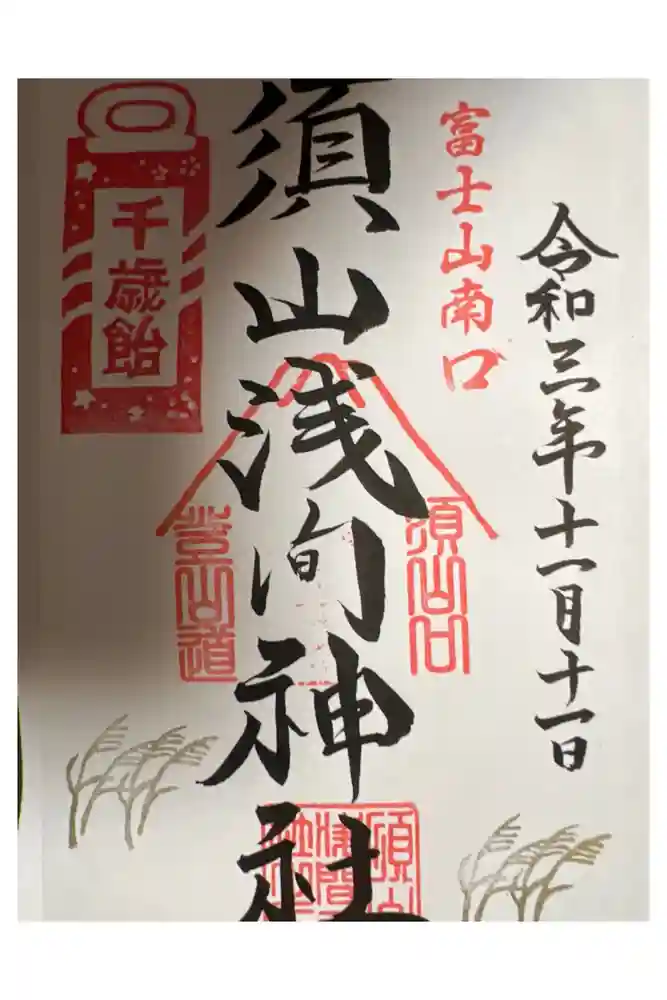 令和三年十一月十一日
富士山南口
須山浅間神社
須山口
登山道
千歳飴